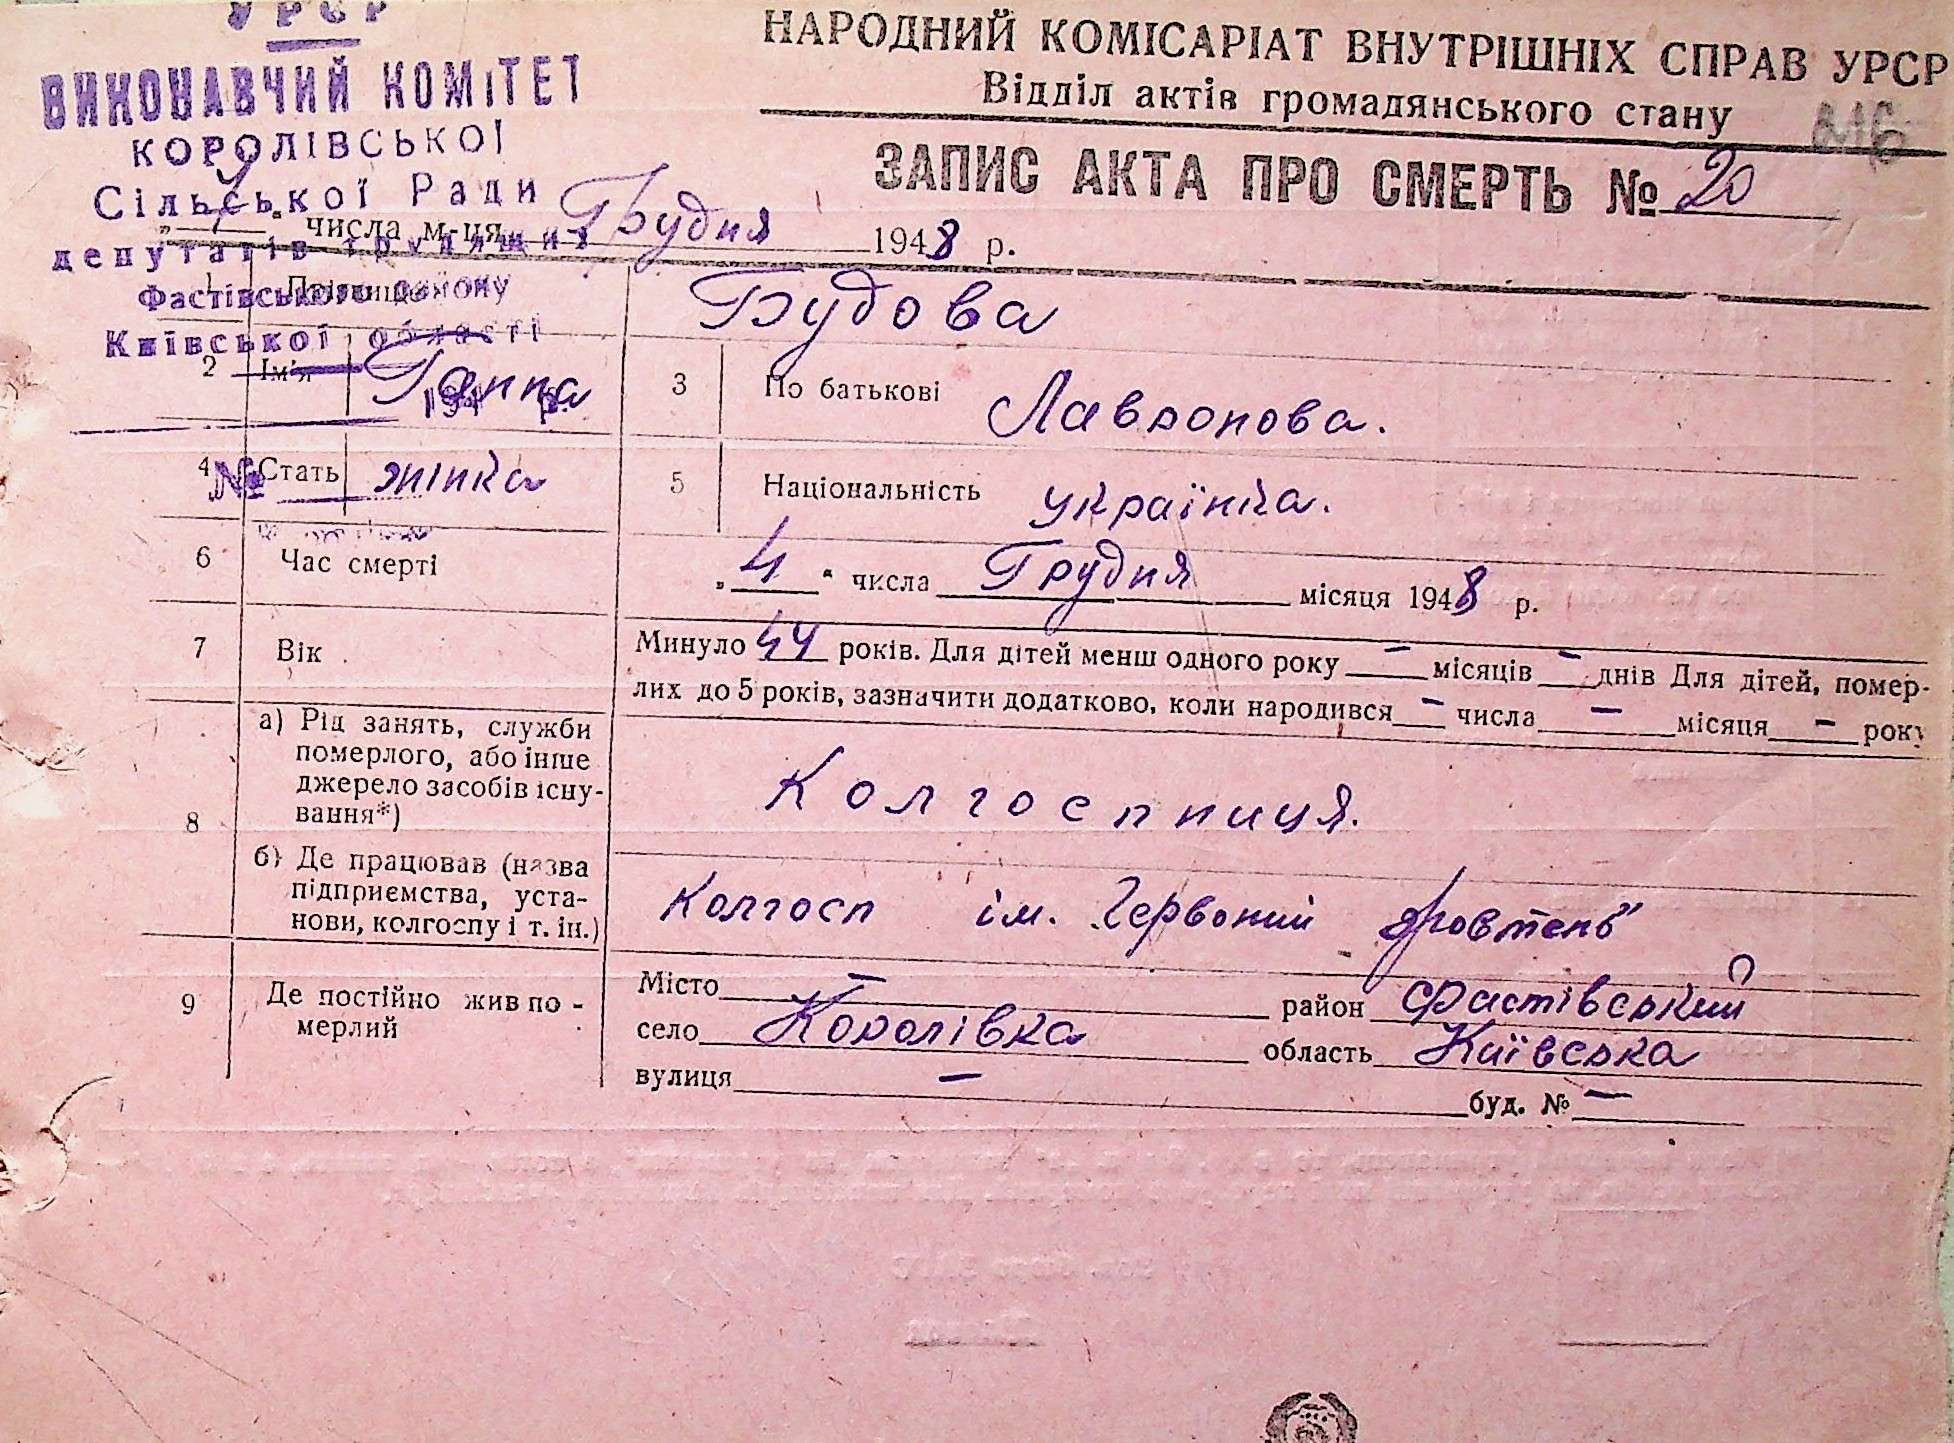 УРСР
ВИКОНАВЧИЙ КОМІТЕТ
КОРОЛІВСЬКОЇ
Сільської Ради
депутатів трудящих
Фастівського району
Київської області
194 р.
№
НАРОДНИЙ КОМІСАРІАТ ВНУТРІШНІХ СПРАВ УРСР
Відділ актів громадянського стану
216
ЗАПИС АКТА ПРО СМЕРТЬ № 20
числа м-ця Грудня 1948 р.
1 Прізвище Будова
2 Ім'я Ганна 3 По батькові Лавронова.
4 Стать жінка 5 Національність українка.
6 Час смерті „4“ числа Грудня місяця 1948 р.
7 Вік Минуло 44 років. Для дітей менш одного року – місяців – днів Для дітей, помер-
лих до 5 років, зазначити додатково, коли народився – числа – місяця – року
8 а) Рід занять, служби
померлого, або інше
джерело засобів існу-
вання*)
Колгоспниця.
б) Де працював (назва
підприємства, уста-
нови, колгоспу і т. ін.)
Колгосп ім. Червоний Жовтень
9 Де постійно жив по-
мерлий
Місто – район Фастівський
село Королівка область Київська
вулиця – буд. № –